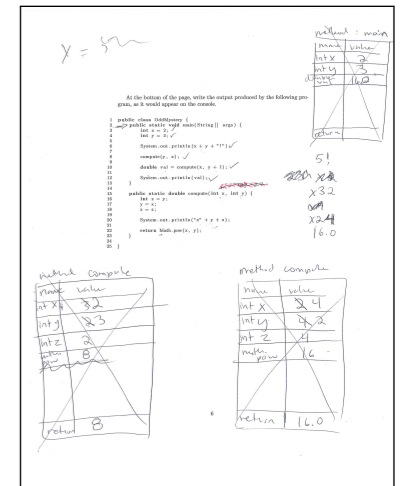 method : main
name value
int x 2
int y 3
double val 16.0
return
At the bottom of the page, write the output produced by the following program, as it would appear on the console.
1 public class OddMystery {
2 public static void main(String[] args) {
3 int x = 2;
4 int y = 3;
5
6 System.out.println(x + y + "!");
7
8 compute(y, x);
9
10 double val = compute(x, y + 1);
11
12 System.out.println(val);
13 }
14
15 public static double compute(int x, int y) {
16 int z = y;
17 y = x;
18 x = z;
19
20 System.out.println("x" + y + z);
21
22 return Math.pow(x, y);
23 }
24
25 }
5!
x32
x24
16.0
method compute
name value
int x 3 2
int y 2 3
int z 2
math. pow 8
return 8
method compute
name value
int x 2 4
int y 4 2
int z 4
math. pow 16
return 16.0
6